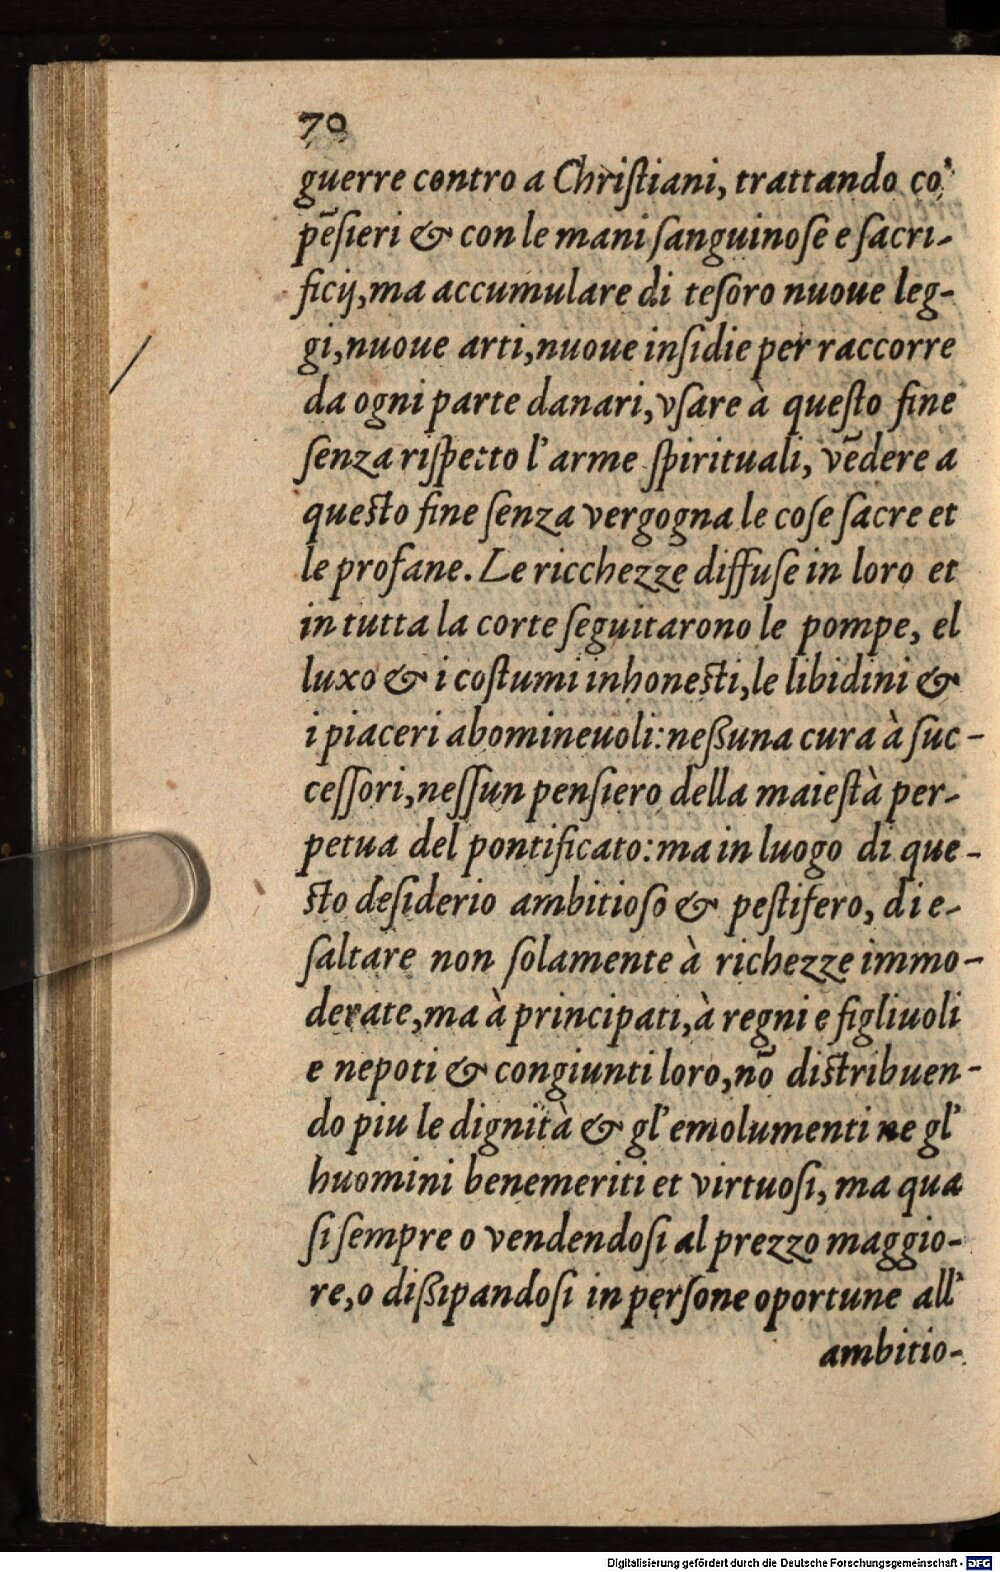 70
guerre contro a Chriſtiani, trattando co'
pēſieri & con le mani ſanguinoſe e ſacri-
ficij, ma accumulare di teſoro nuoue leg-
gi, nuoue arti, nuoue inſidie per raccorre
da ogni parte danari, vſare à queſto fine
ſenza riſpetto l'arme ſpirituali, vēdere a
queſto fine ſenza vergogna le coſe ſacre et
le profane. Le ricchezze diffuſe in loro et
in tutta la corte ſeguitarono le pompe, el
luxo & i coſtumi inhoneſti, le libidini &
i piaceri abomineuoli: neßuna cura à ſuc-
ceſſori, neſſun penſiero della maieſtà per-
petua del pontificato: ma in luogo di que-
ſto deſiderio ambitioſo & peſtifero, di e-
ſaltare non ſolamente à richezze immo-
derate, ma à principati, à regni e figliuoli
e nepoti & congiunti loro, nō diſtribuen-
do piu le dignità & gl'emolumenti ne gl'
huomini benemeriti et virtuoſi, ma qua
ſi ſempre o vendendoſi al prezzo maggio-
re, o dißipandoſi in perſone oportune all'
ambitio-
Digitalisierung gefördert durch die Deutsche Forschungsgemeinschaft - DFG